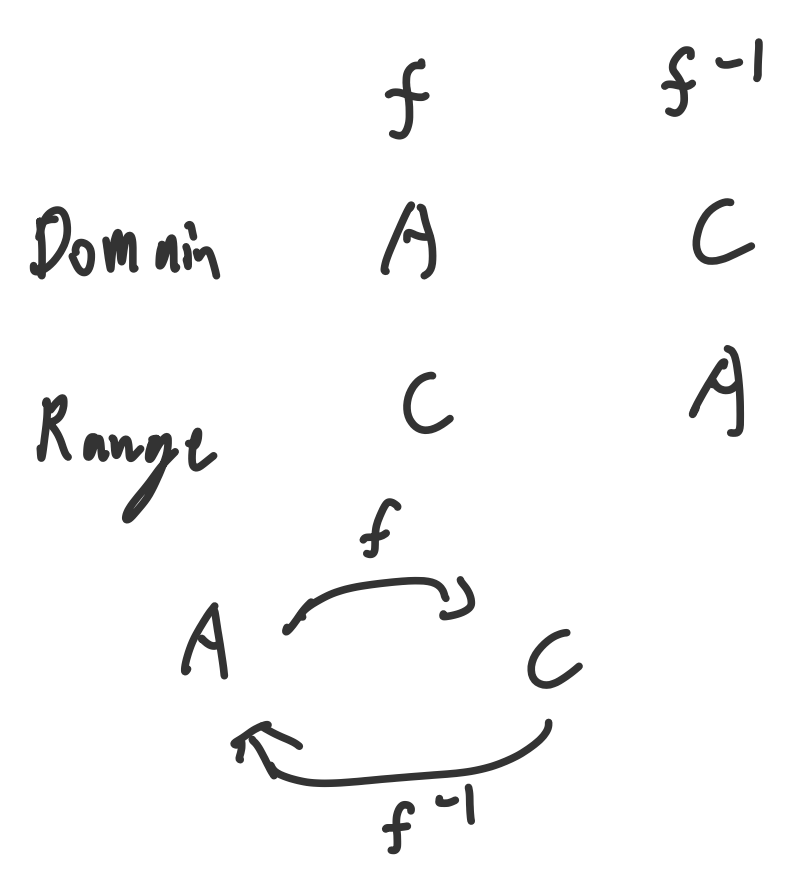 f f⁻¹
Domain A C
Range C A
f
A C
f⁻¹